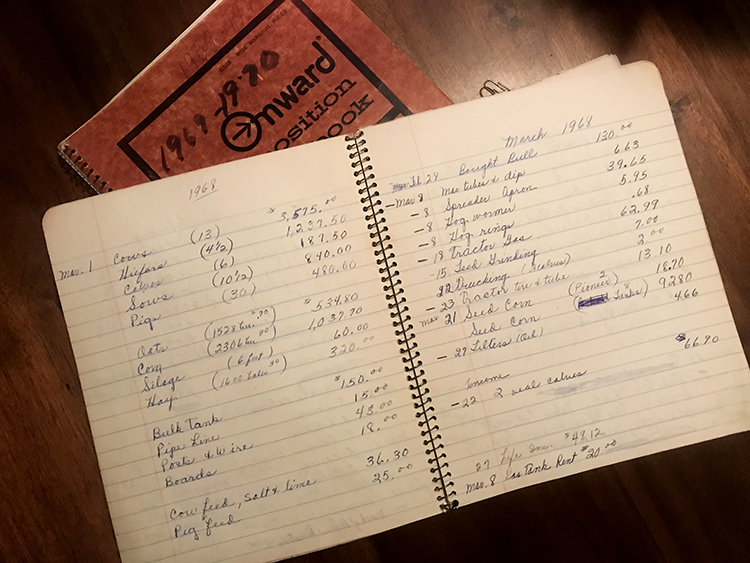 1969-1970
Onward®
osition
book
1968
Mar. 1 Cows (13) $3,575.00
Heifers (4½) 1,237.50
Calves (6) 187.50
Sows (10½) 840.00
Pigs (30) 480.00
Oats (1528 bu) $534.80
Corn (2306 bu) 1,037.70
Silage (6 feet) 60.00
Hay (1600 bales) 320.00
Bulk Tank $150.00
Pipe Line 15.00
Posts & Wire 43.00
Boards 18.00
Cow feed, salt & lime 36.30
Pig feed 25.00
March 1968
29 Bought Bull 130.00
- Mar. 8 tubes & dip 6.63
- 8 Spreader Apron 39.65
- 8 Hog wormer 5.95
- 8 Hog rings .68
- 18 Tractor Gas 62.99
- 15 Feed Grinding 7.00
22 Trucking (2 calves) 2.00
- 23 Tractor tire & tube 13.10
Mar 21 Seed Corn (Pioneer) 2 18.70
Seed Corn 8 92.80
- 27 Filters (Oil) 4.66
Income
- 22 2 veal calves $66.70
27 Life Ins. $48.12
Mar. 8 Gas Tank Rent $20.00